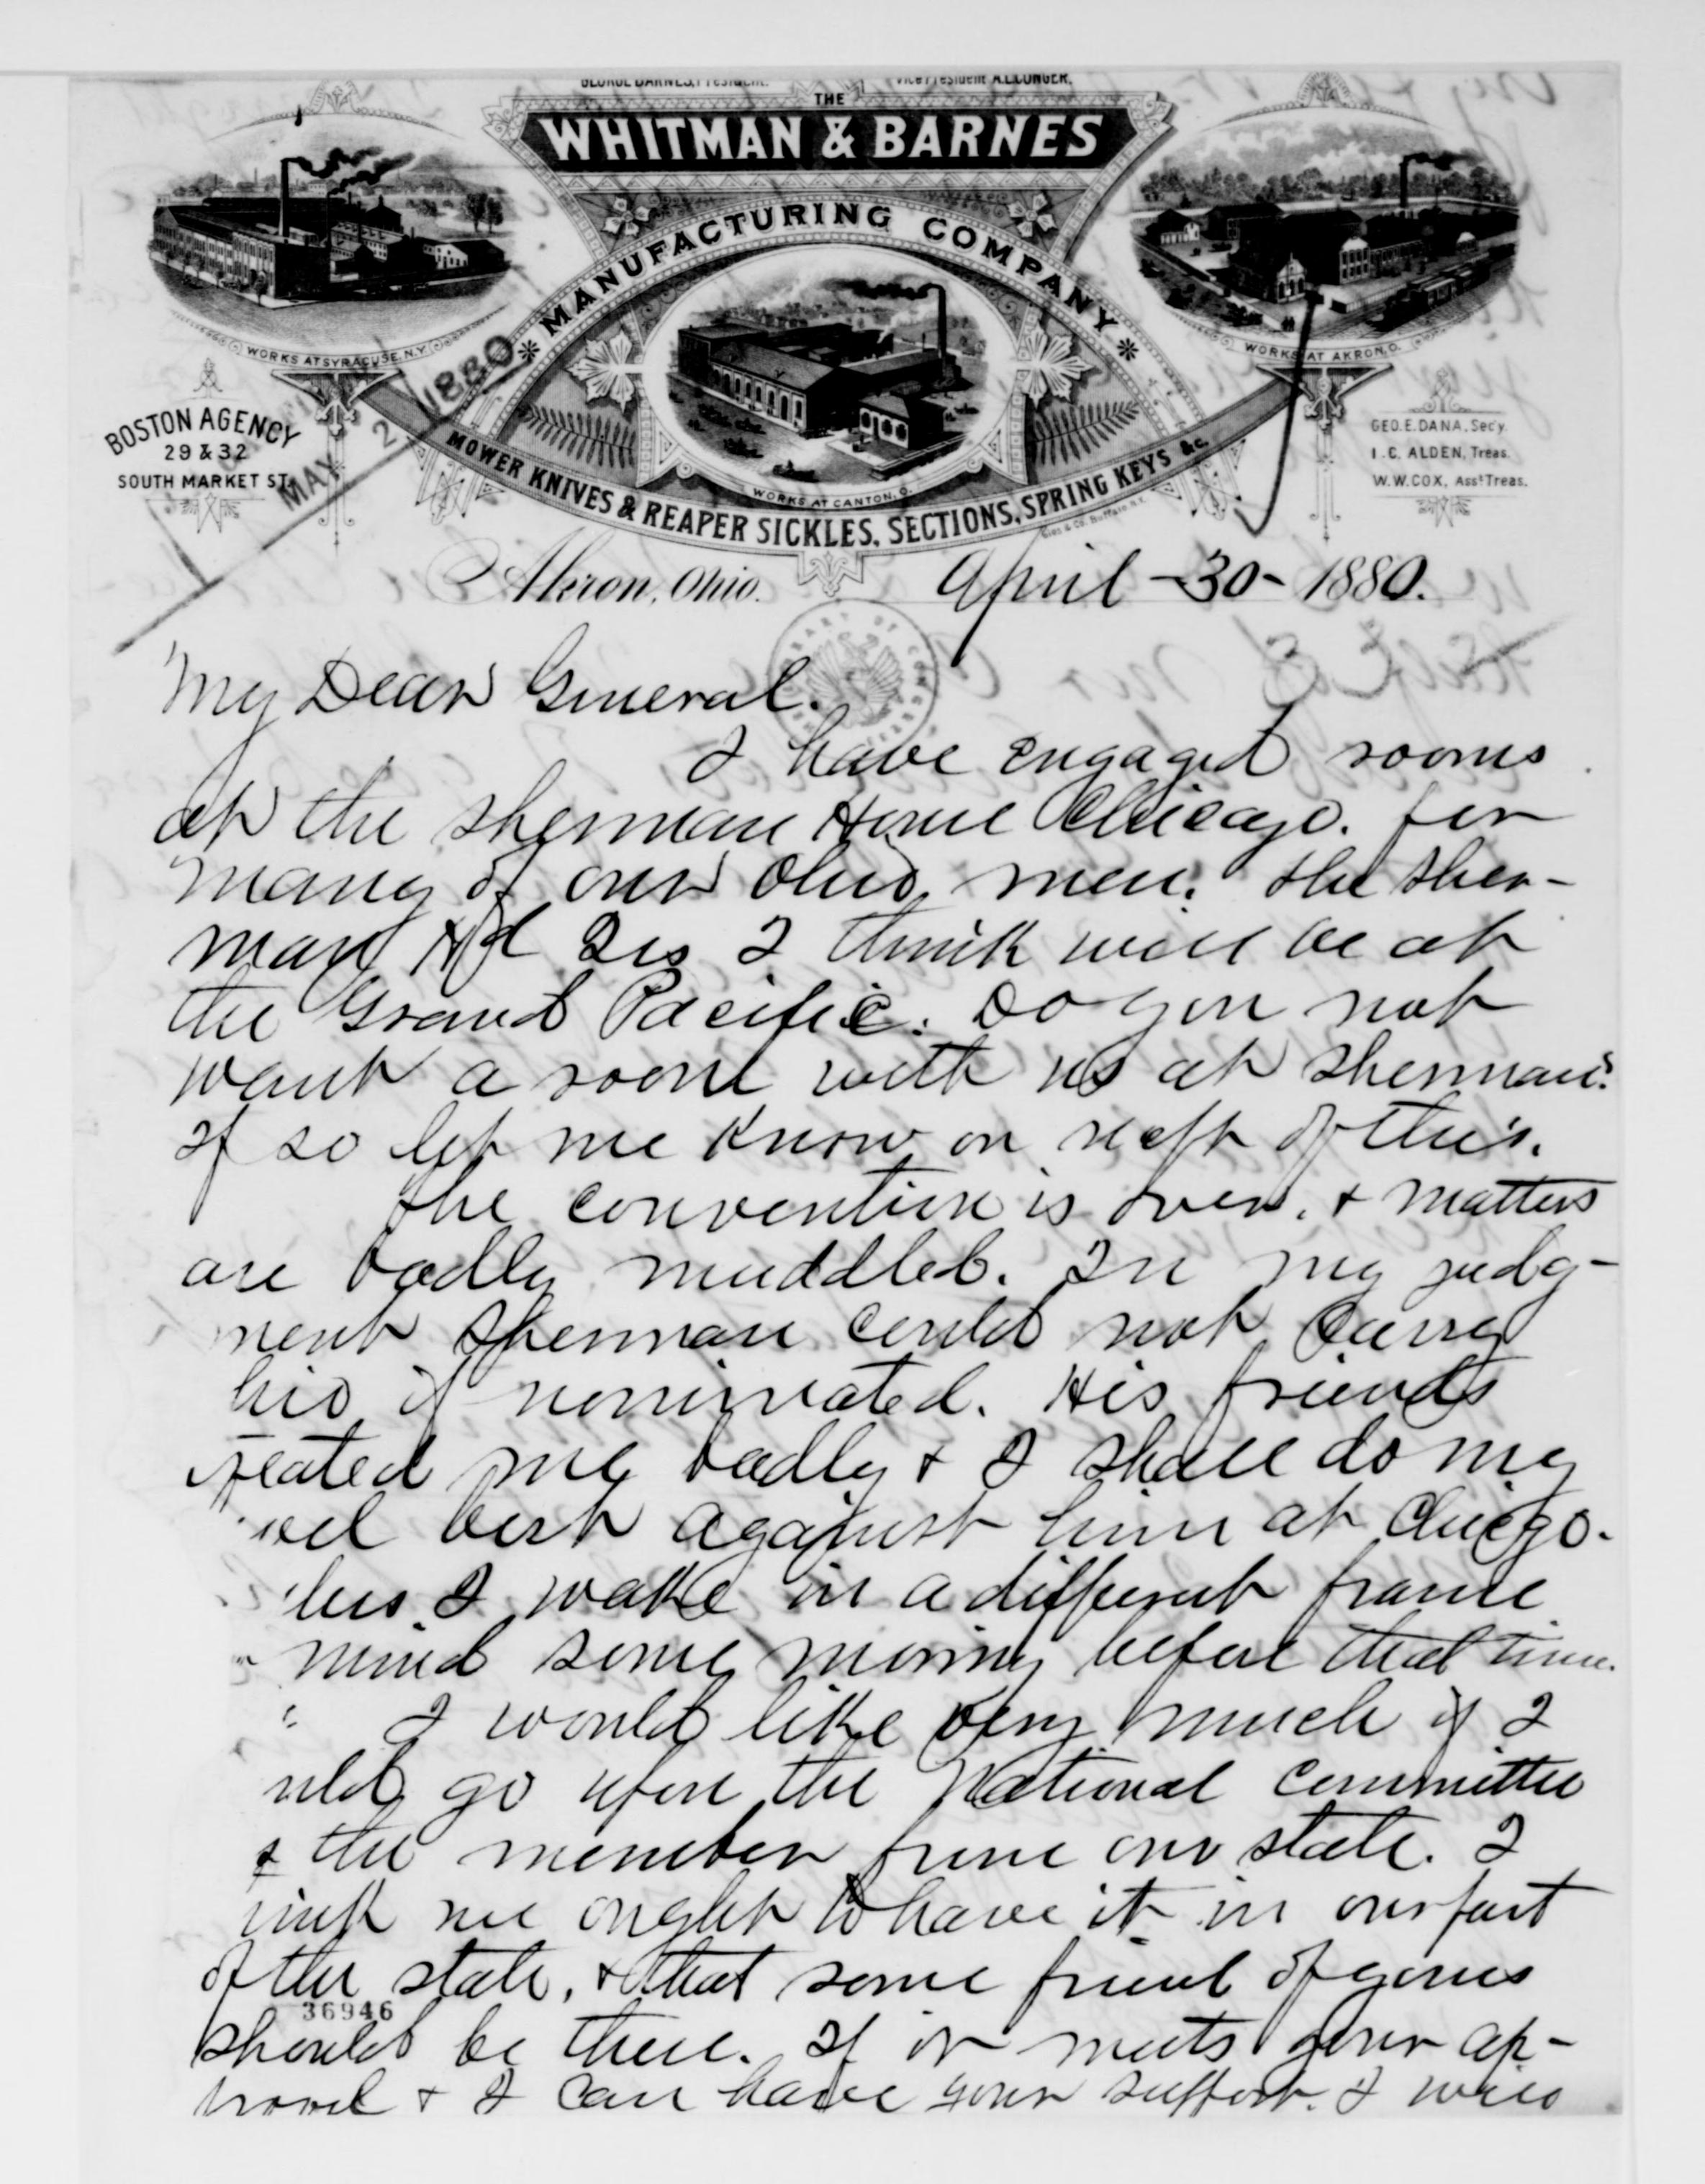 GEORGE BARNES, President.
Vice President A.L. CONGER.
THE
WHITMAN & BARNES
MANUFACTURING COMPANY
WORKS AT SYRACUSE, N.Y.
WORKS AT CANTON, O.
WORKS AT AKRON, O.
MOWER KNIVES & REAPER SICKLES, SECTIONS, SPRING KEYS &c.
BOSTON AGENCY
29 & 32
SOUTH MARKET ST.
GEO. E. DANA, Sec'y.
I. C. ALDEN, Treas.
W. W. COX, Ass't Treas.
MAY 2 1880
Akron, Ohio. April -30- 1880.
My Dear General.
I have engaged rooms
at the Sherman House Chicago. for
many of our Ohio men. The Sher-
man Hd Qrs I think will be at
the Grand Pacific. Do you not
want a room with us at Sherman?
If so let me know on rect of this.
The convention is over, & matters
are badly muddled. In my judg-
ment Sherman could not carry
hio if nominated. His friends
reated me badly & I shall do my
vel best against him at Chicago.
less I wake in a different frame
mind some morning before that time.
I would like very much if I
uld go upon the National Committee
s the member from our state. I
ink we ought to have it in our part
of the state, & that some friend of yours
36946
should be there. If it meets your ap-
proval & I can have your support. I will